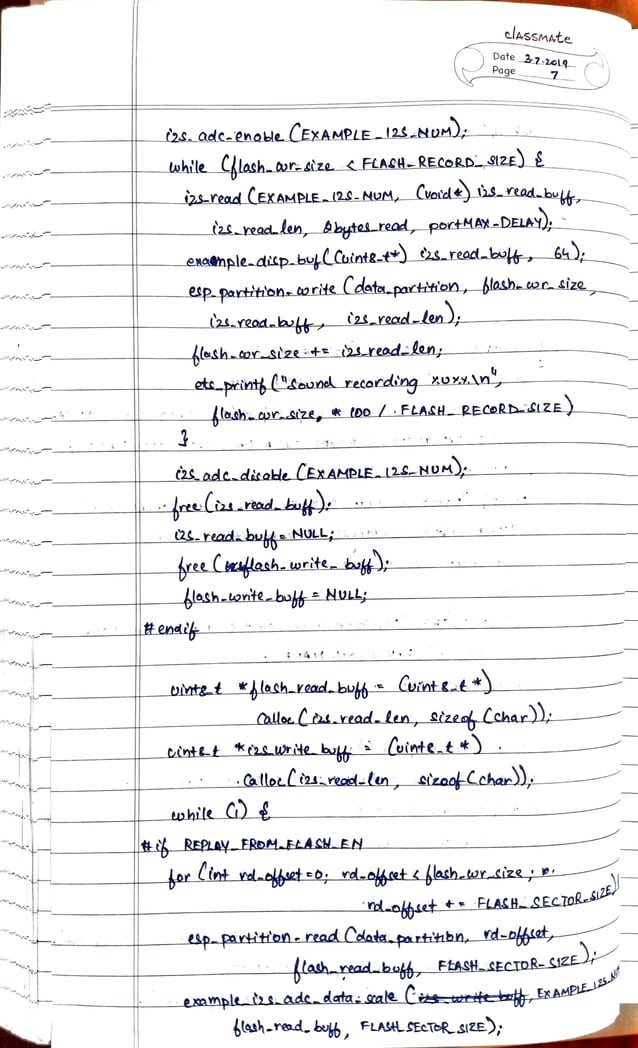 classmate
Date 3.7.2019
Page 7
i2s_adc_enable (EXAMPLE_I2S_NUM);
while (flash_wr_size < FLASH_RECORD_SIZE) {
i2s_read (EXAMPLE_I2S_NUM, (void*) i2s_read_buff,
i2s_read_len, &bytes_read, portMAX_DELAY);
example_disp_buf((uint8_t*) i2s_read_buff, 64);
esp_partition_write (data_partition, flash_wr_size,
i2s_read_buff, i2s_read_len);
flash_wr_size += i2s_read_len;
ets_printf ("Sound recording %u%%\n",
flash_wr_size, * 100 / FLASH_RECORD_SIZE)
}
i2s_adc_disable (EXAMPLE_I2S_NUM);
free (i2s_read_buff);
i2s_read_buff = NULL;
free (flash_write_buff);
flash_write_buff = NULL;
#endif
uint8_t *flash_read_buff = (uint8_t*)
calloc (i2s_read_len, sizeof (char));
uint8_t *i2s_write_buff = (uint8_t*)
calloc (i2s_read_len, sizeof (char));
while (1) {
#if REPLAY_FROM_FLASH_EN
for (int rd_offset = 0; rd_offset < flash_wr_size;
rd_offset += FLASH_SECTOR_SIZE)
esp_partition_read (data_partition, rd_offset,
flash_read_buff, FLASH_SECTOR_SIZE);
example_i2s_adc_data_scale (i2s_write_buff, EXAMPLE_I2S_NUM
flash_read_buff, FLASH_SECTOR_SIZE);